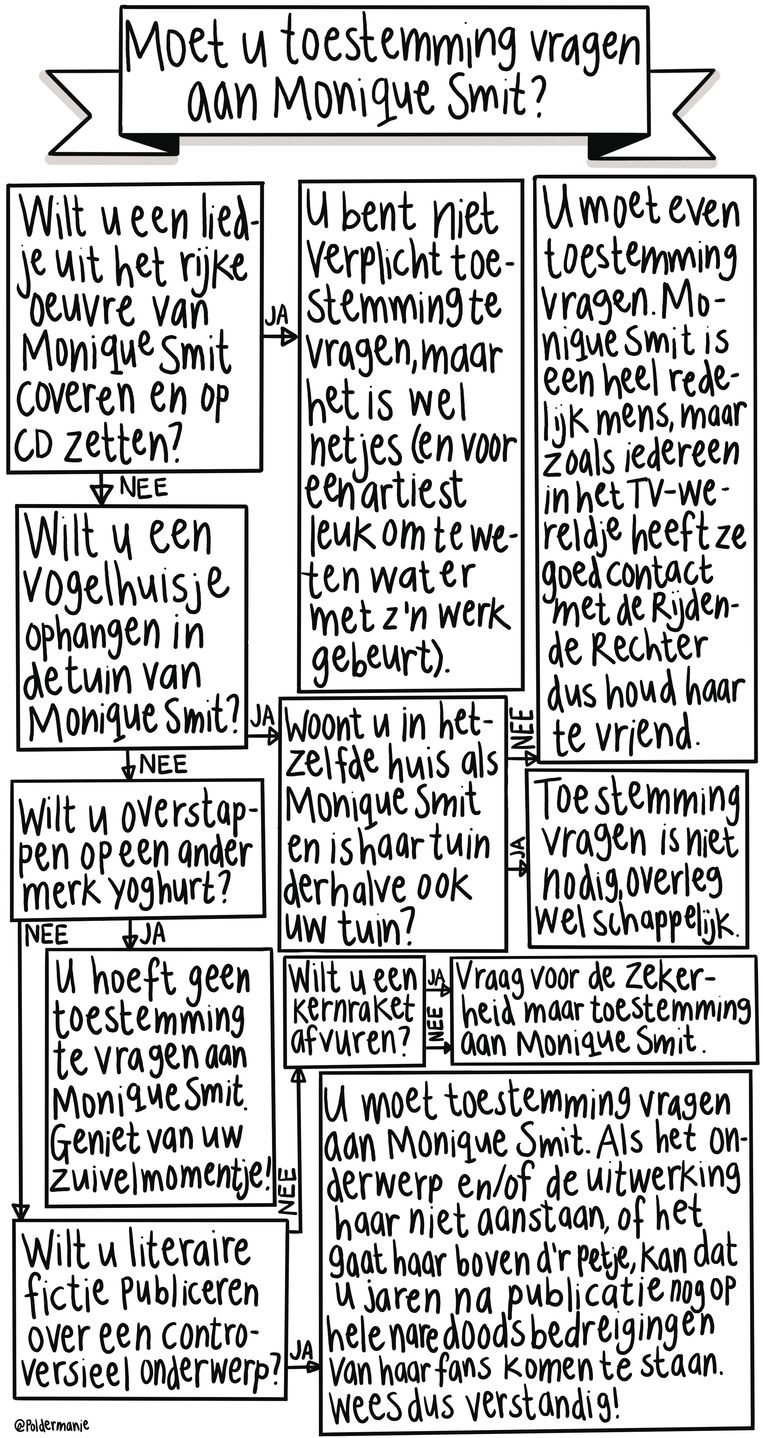 Moet u toestemming vragen
aan Monique Smit?
Wilt u een lied-
je uit het rijke
oeuvre van
Monique Smit
coveren en op
CD zetten?
JA
U bent niet
verplicht toe-
stemming te
vragen, maar
het is wel
netjes (en voor
een artiest
leuk om te we-
ten wat er
met z'n werk
gebeurt).
NEE
Wilt u een
vogelhuisje
ophangen in
de tuin van
Monique Smit?
JA
Woont u in het-
zelfde huis als
Monique Smit
en is haar tuin
derhalve ook
uw tuin?
NEE
U moet even
toestemming
vragen. Mo-
nique Smit is
een heel rede-
lijk mens, maar
zoals iedereen
in het TV-we-
reldje heeft ze
goed contact
met de Rijden-
de Rechter
dus houd haar
te vriend.
JA
Toestemming
vragen is niet
nodig, overleg
wel schappelijk.
NEE
Wilt u overstap-
pen op een ander
merk yoghurt?
JA
U hoeft geen
toestemming
te vragen aan
Monique Smit.
Geniet van uw
zuivelmomentje!
NEE
Wilt u literaire
fictie publiceren
over een contro-
versieel onderwerp?
JA
U moet toestemming vragen
aan Monique Smit. Als het on-
derwerp en/of de uitwerking
haar niet aanstaan, of het
gaat haar boven d'r petje, kan dat
u jaren na publicatie nog op
hele nare doodsbedreigingen
van haar fans komen te staan.
Wees dus verstandig!
NEE
Wilt u een
kernraket
afvuren?
JA
NEE
Vraag voor de zeker-
heid maar toestemming
aan Monique Smit.
@Poldermanie